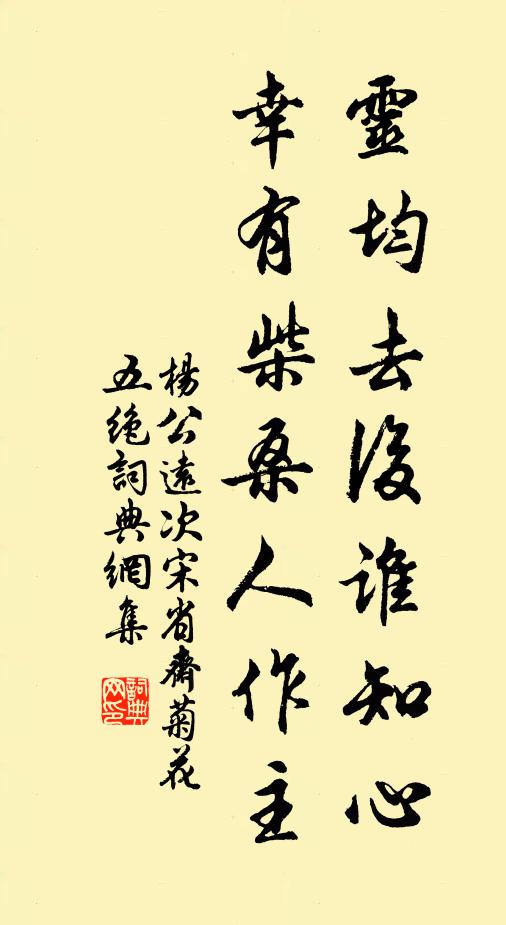 靈均去後誰知心
幸有柴桑人作主
楊公遠次宋省齋菊花
五絕詞典網集
詞典
网印